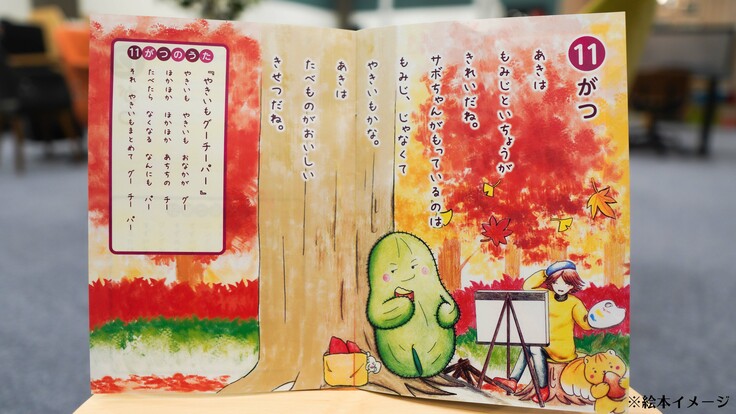 11がつ
あきは
もみじといちょうが
きれいだね。
サボちゃんがもっているのは
もみじ、じゃなくて
やきいもかな。
あきは
たべものがおいしい
きせつだね。
11がつのうた
『やきいもグーチーパー』
やきいも やきいも おなかが グー
ほかほか ほかほか あちちの チー
たべたら なくなる なんにも パー
それ やきいもまとめて グー チー パー
※絵本イメージ